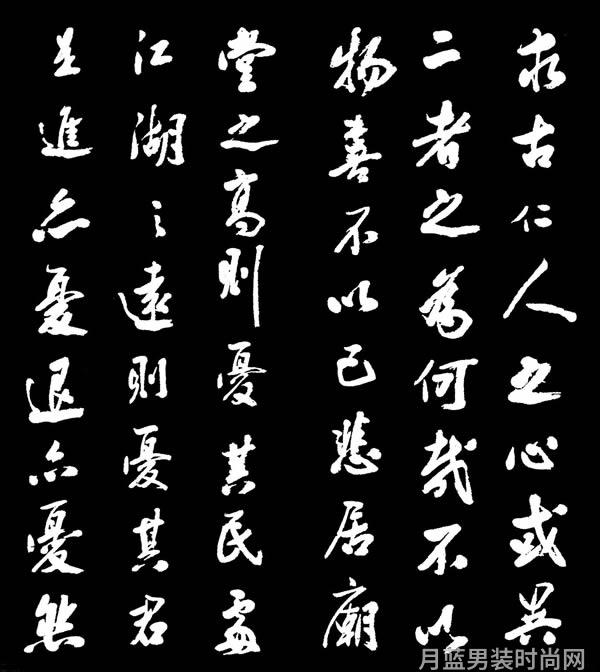 求古仁人之心或異
二者之為何哉不以
物喜不以己悲居廟
堂之高則憂其民處
江湖之遠則憂其君
是進亦憂退亦憂然
月蓝男装时尚网